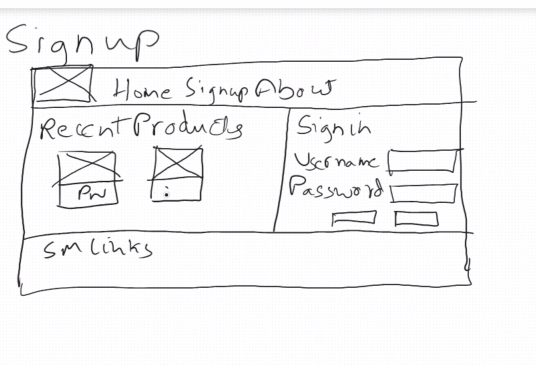 Signup
Home Signup About
Recent Products
Sign in
Username
Password
SM Links